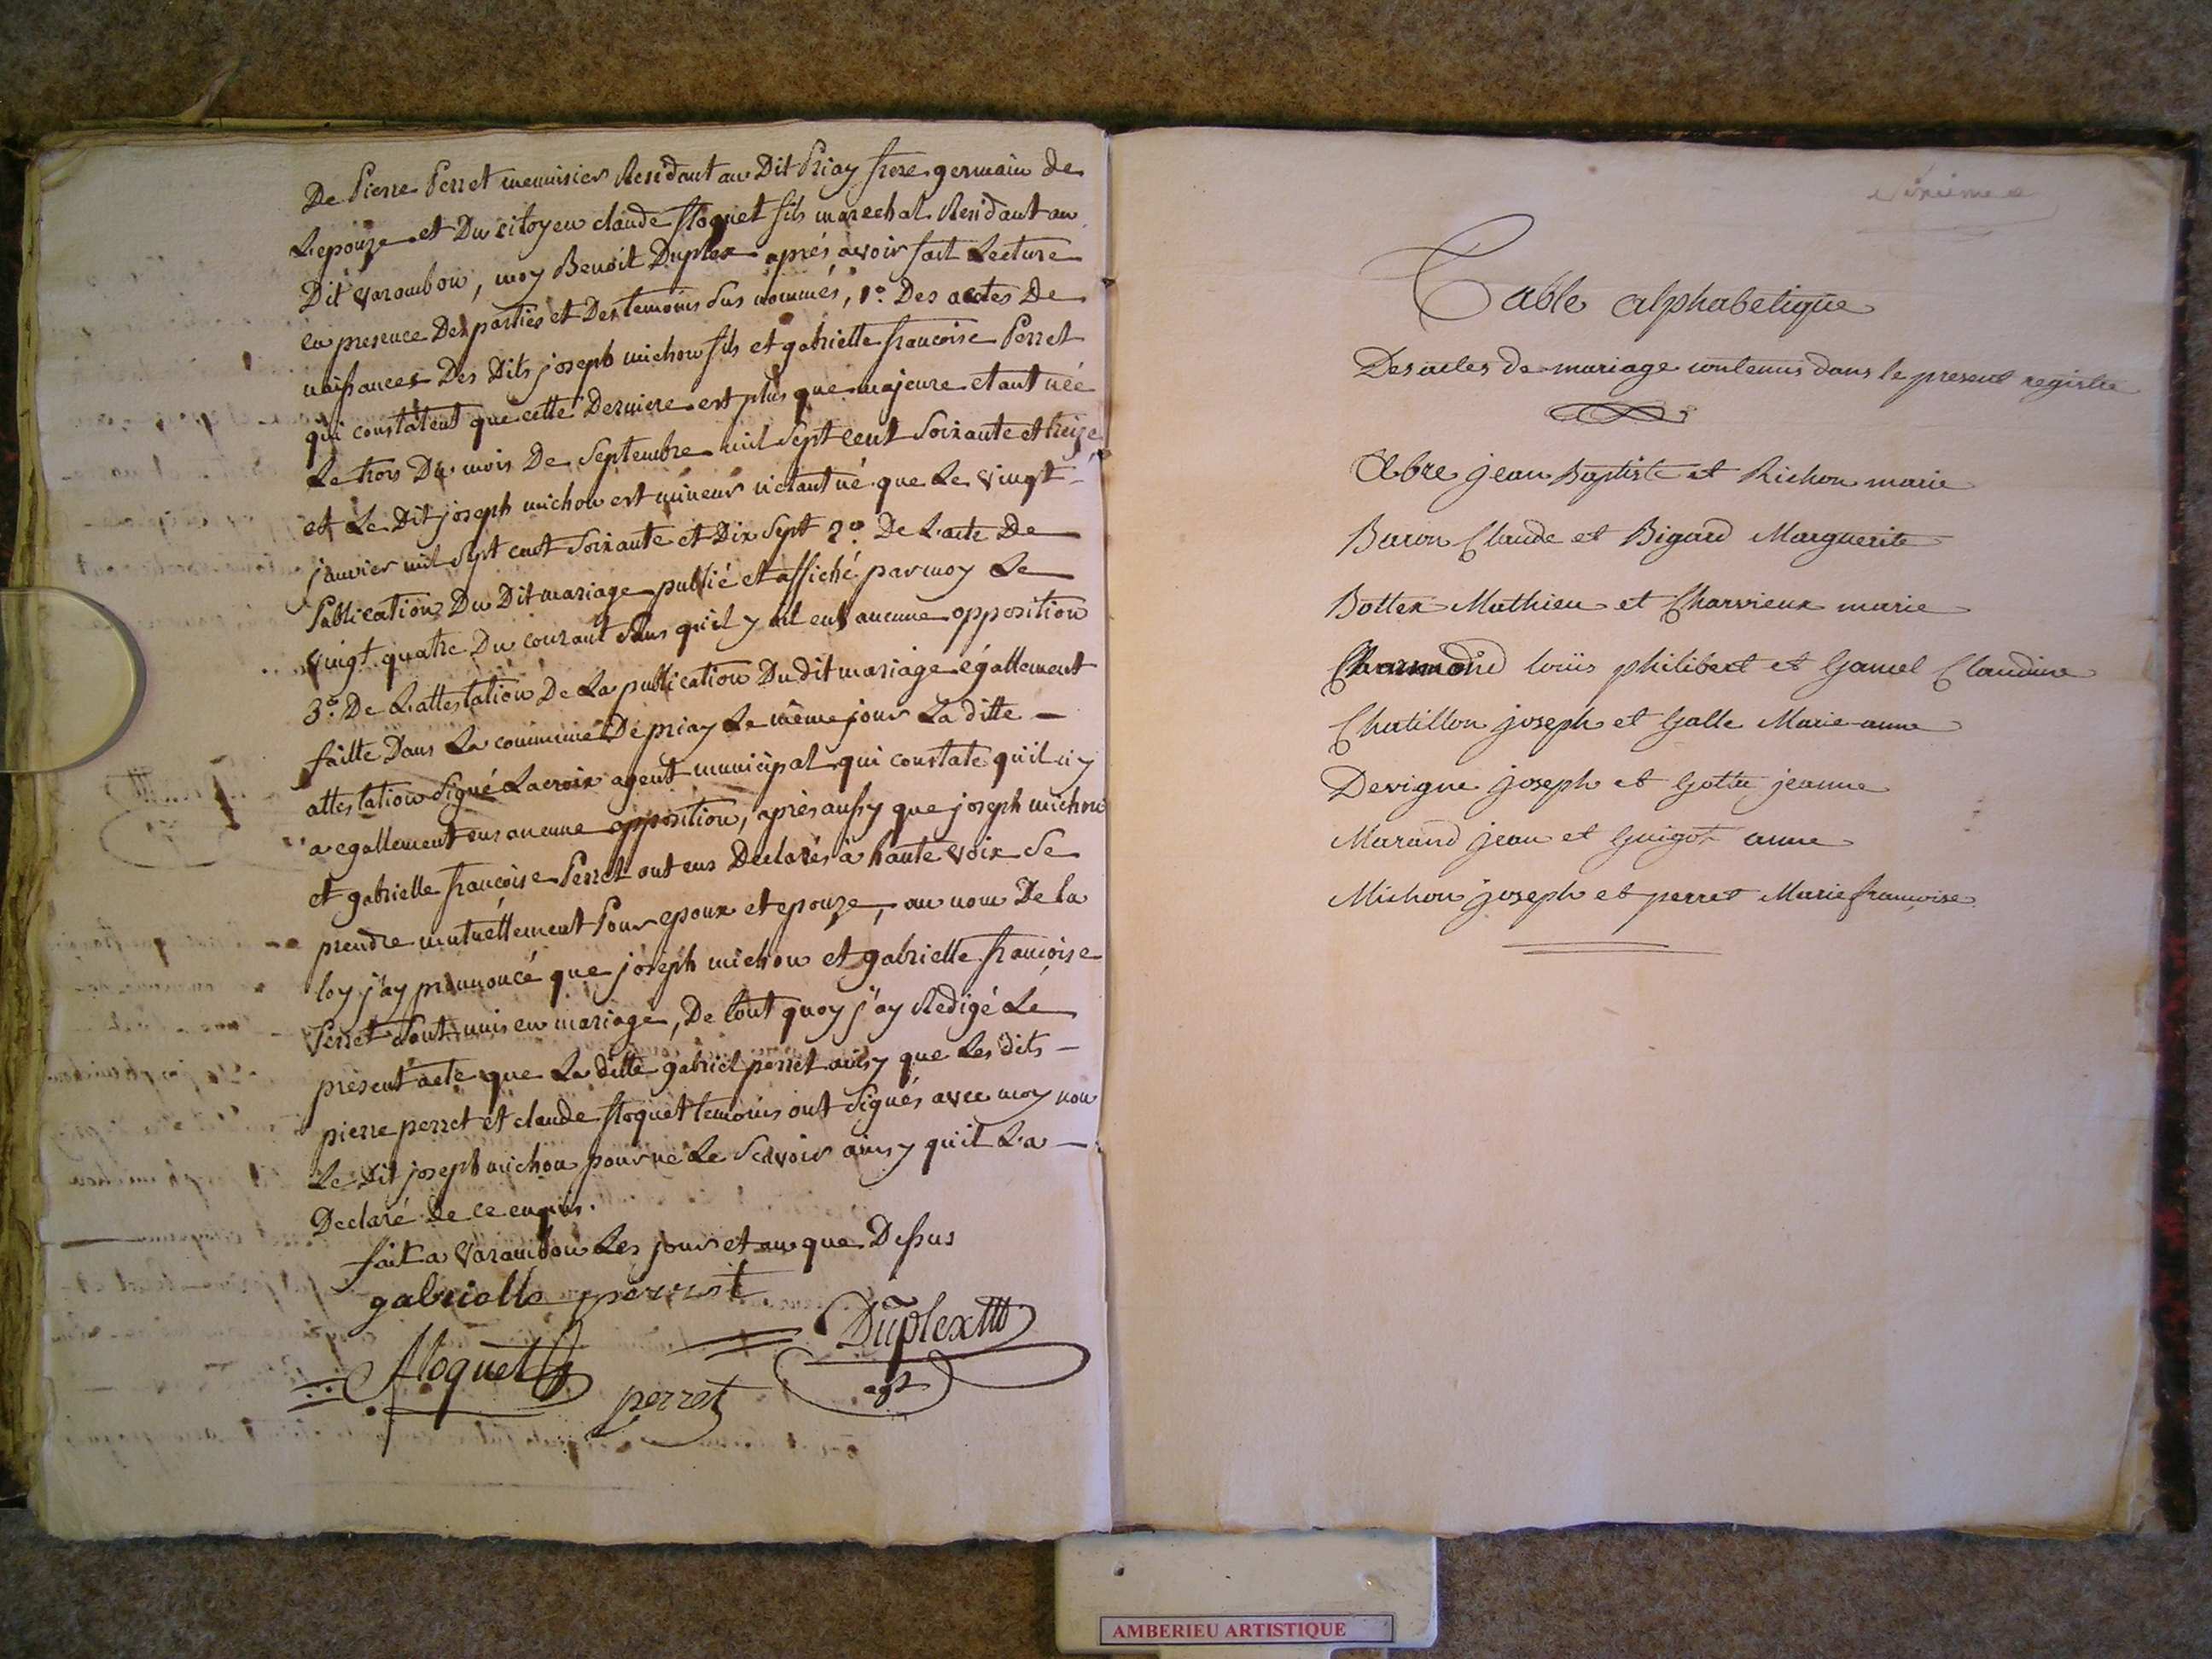 De Pierre Perret menuisier Residant au Dit Priay frere germain de
L'epouze et Du citoyen claude floquet fils marechal Residant au
Dit varambon, moy Benoit Duplex aprés avoir fait Lecture
en presence Des parties et Des temoins sus nommés, 1º. Des actes De
naissances Des Dits joseph michon fils et gabrielle francoise Perret
qui constatent que cette Derniere est plus que majeure etant née
Le trois Du mois De Septembre mil Sept cent Soixante et treize
et Le Dit joseph michon est mineur n'etant né que Le vingt
janvier mil Sept cent Soixante et Dix Sept 2º. De L'acte De
Publication Du Dit mariage publié et affiché par moy Le
vingt quatre Du courant Sans qu'il y ait eus aucune opposition
3º. De L'attestation De La publication Du dit mariage égallement
faitte Dans La commune De priay Le même jour La ditte —
attestation Signé Lacroix agent municipal qui constate qu'il n'y
a egallement eus aucune opposition, aprés aussy que joseph michon
et gabrielle françoise Perret ont eus Declarés à haute voix Se
prendre mutuellement Pour epoux et epouze, au nom De la
loy j'ay prononcé que joseph michon et gabrielle francoise
Perret Sont unis en mariage, De tout quoy j'ay Redigé Le
présent acte que La ditte gabriel perret ainsy que Les dits —
pierre perret et claude floquet temoins ont Signés avec moy non
Le Dit joseph michon pour ne Le Scavoir ainsy qu'il L'a —
Declaré de ce enquis.
fait a varambon Les jour et an que Dessus
gabrielle perret
Duplex
floquet
perret
agt
Table alphabetique
Des actes de mariage contenus dans le present registre
Abre jean Baptiste et Richon marie
Baron Claude et Bigard Marguerite
Bottex Mathieu et Charvieux marie
louis philibert et Gamel Claudine
Chatillon joseph et Galle Marie anne
Devigne joseph et Gotte jeanne
Marand jean et Guigot anne
Michon joseph et perret Marie françoise
AMBERIEU ARTISTIQUE